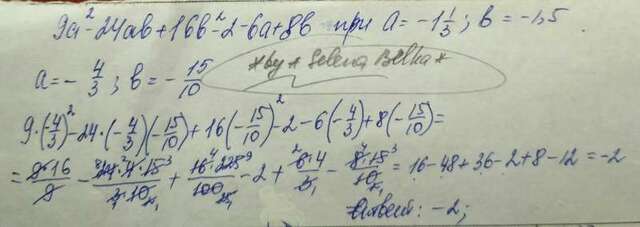 9a²-24ab+16b²-2-6a+8b при a=-1 1/3; b=-1,5.
a=-4/3; b=-15/10 *by * Selena Belka*
9·(-4/3)²-24·(-4/3)(-15/10)+16(-15/10)²-2-6(-4/3)+8(-15/10)=
=9·16/9 - 24·4·15/3·10 + 16·225/100 - 2 + 6·4/3 - 8·15/10 = 16-48+36-2+8-12=-2
Ответ: -2;